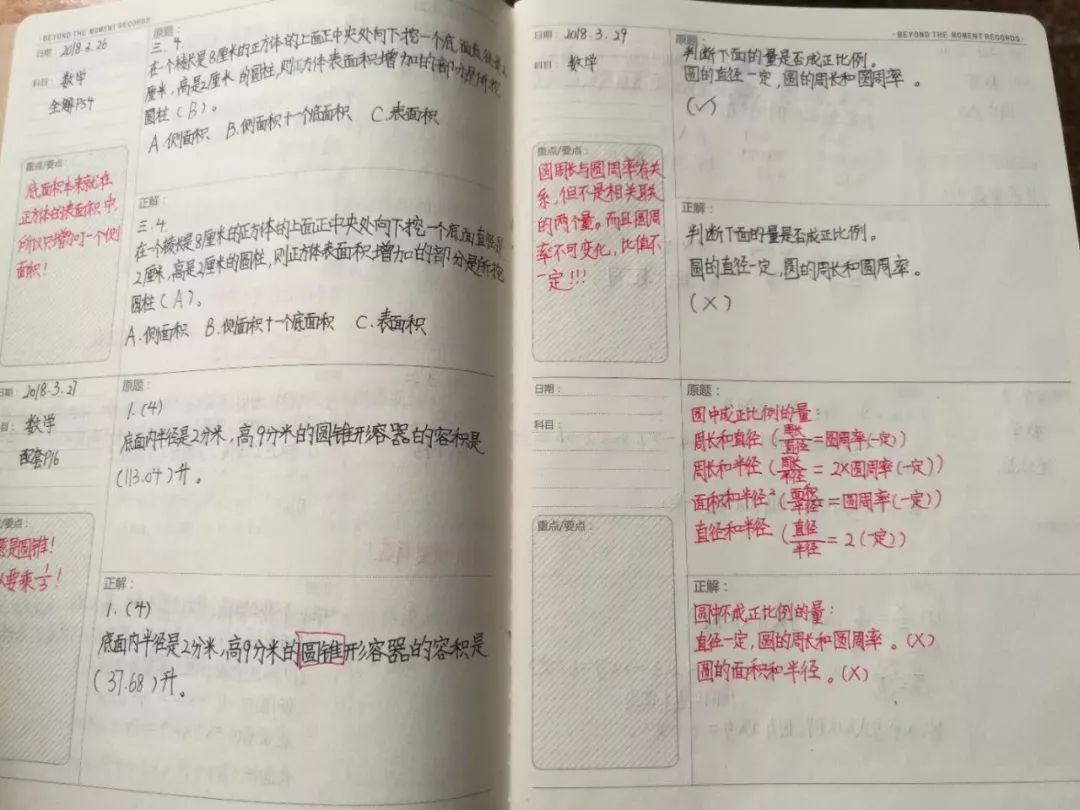 ·BEYOND THE MOMENT RECORDS·
日期：2018.3.26
科目：数学
全解P34
原题：
三.4.
在一个棱长是8厘米的正方体的上面正中央处向下挖一个底面直径是2
厘米，高是2厘米的圆柱，则正方体表面积增加的部分是所挖
圆柱（B）。
A.侧面积 B.侧面积+一个底面积 C.表面积
重点/要点：
底面积本来就在
正方体的表面积中，
所以只增加了一个侧
面积！
正解：
三.4.
在一个棱长是8厘米的正方体的上面正中央处向下挖一个底面直径是
2厘米，高是2厘米的圆柱，则正方体表面积增加的部分是所挖
圆柱（A）。
A.侧面积 B.侧面积+一个底面积 C.表面积
日期：2018.3.27
目：数学
配套P16
原题：
1.(4)
底面内半径是2分米，高9分米的圆锥形容器的容积是
(113.04)升。
/要点：
是圆锥！
要乘1/3！
正解：
1.(4)
底面内半径是2分米，高9分米的圆锥形容器的容积是
(37.68)升。
·BEYOND THE MOMENT RECORDS·
日期：2018.3.29
科目：数学
原题：
判断下面的量是否成正比例。
圆的直径一定，圆的周长和圆周率。
(√)
重点/要点：
圆周长与圆周率有关
系，但不是相关联
的两个量。而且圆周
率不可变化，比值不
一定!!!
正解：
判断下面的量是否成正比例。
圆的直径一定，圆的周长和圆周率。
(×)
日期：
科目：
原题：
圆中成正比例的量：
周长和直径（周长/直径=圆周率(一定)）
周长和半径（周长/半径=2×圆周率(一定)）
面积和半径²（面积/半径²=圆周率(一定)）
直径和半径（直径/半径=2(一定)）
重点/要点：
正解：
圆中不成正比例的量：
直径一定，圆的周长和圆周率。(×)
圆的面积和半径。(×)